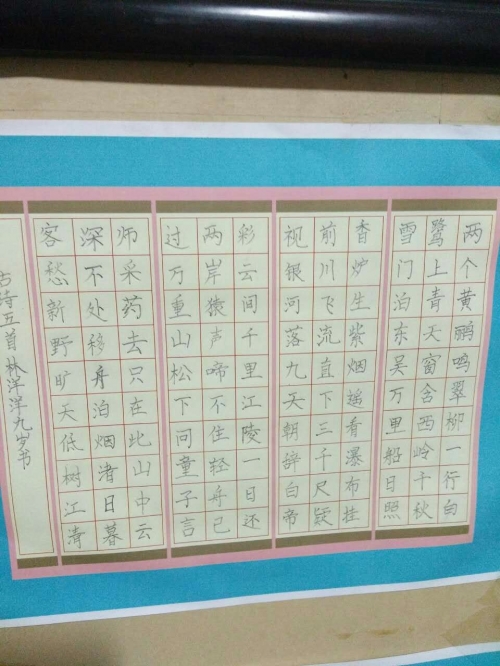 两个黄鹂鸣翠柳一行白
鹭上青天窗含西岭千秋
雪门泊东吴万里船日照
香炉生紫烟遥看瀑布挂
前川飞流直下三千尺疑
视银河落九天朝辞白帝
彩云间千里江陵一日还
两岸猿声啼不住轻舟已
过万重山松下问童子言
师采药去只在此山中云
深不处移舟泊烟渚日暮
客愁新野旷天低树江清
古诗五首林洋洋九岁书